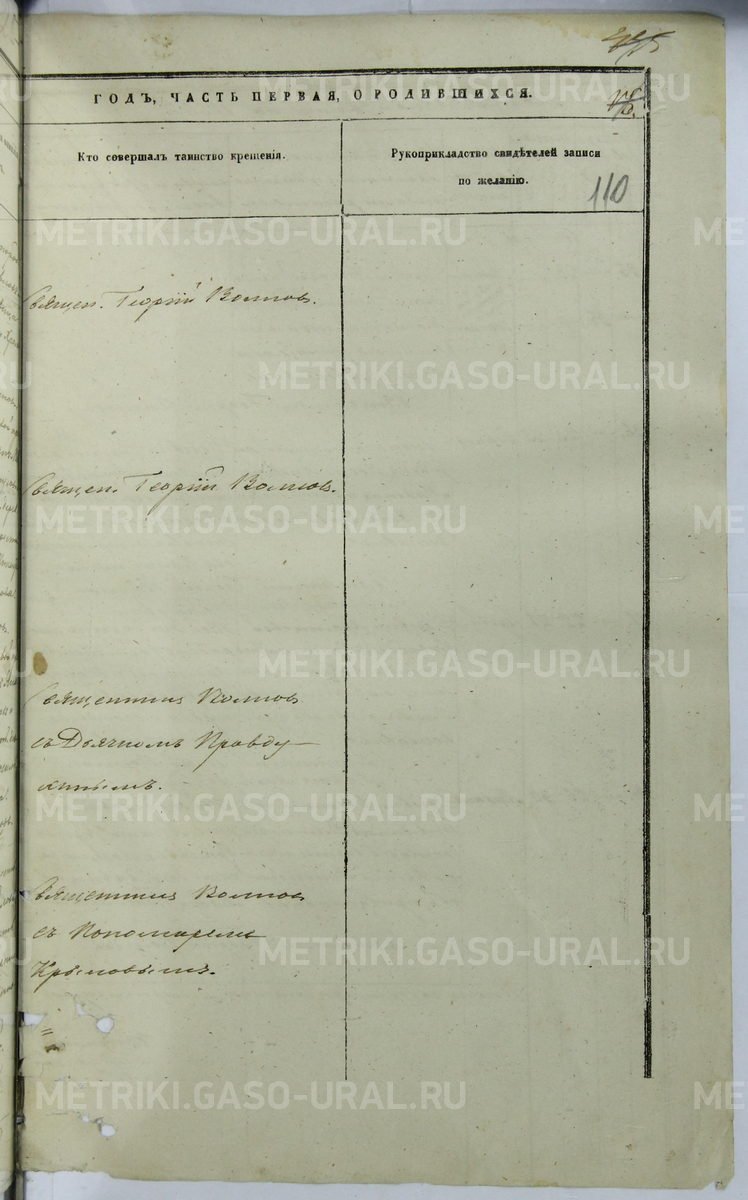 ГОДЪ, ЧАСТЬ ПЕРВАЯ, О РОДИВШИХСЯ.
Кто совершалъ таинство крещенія.
Рукоприкладство свидѣтелей записи
по желанію.
110
Священ. Георгій
Священ. Георгій
Священникъ
съ Дьячкомъ Правду-
хинымъ.
Священникъ
съ Пономаремъ
Крыловымъ.
METRIKI.GASO-URAL.RU